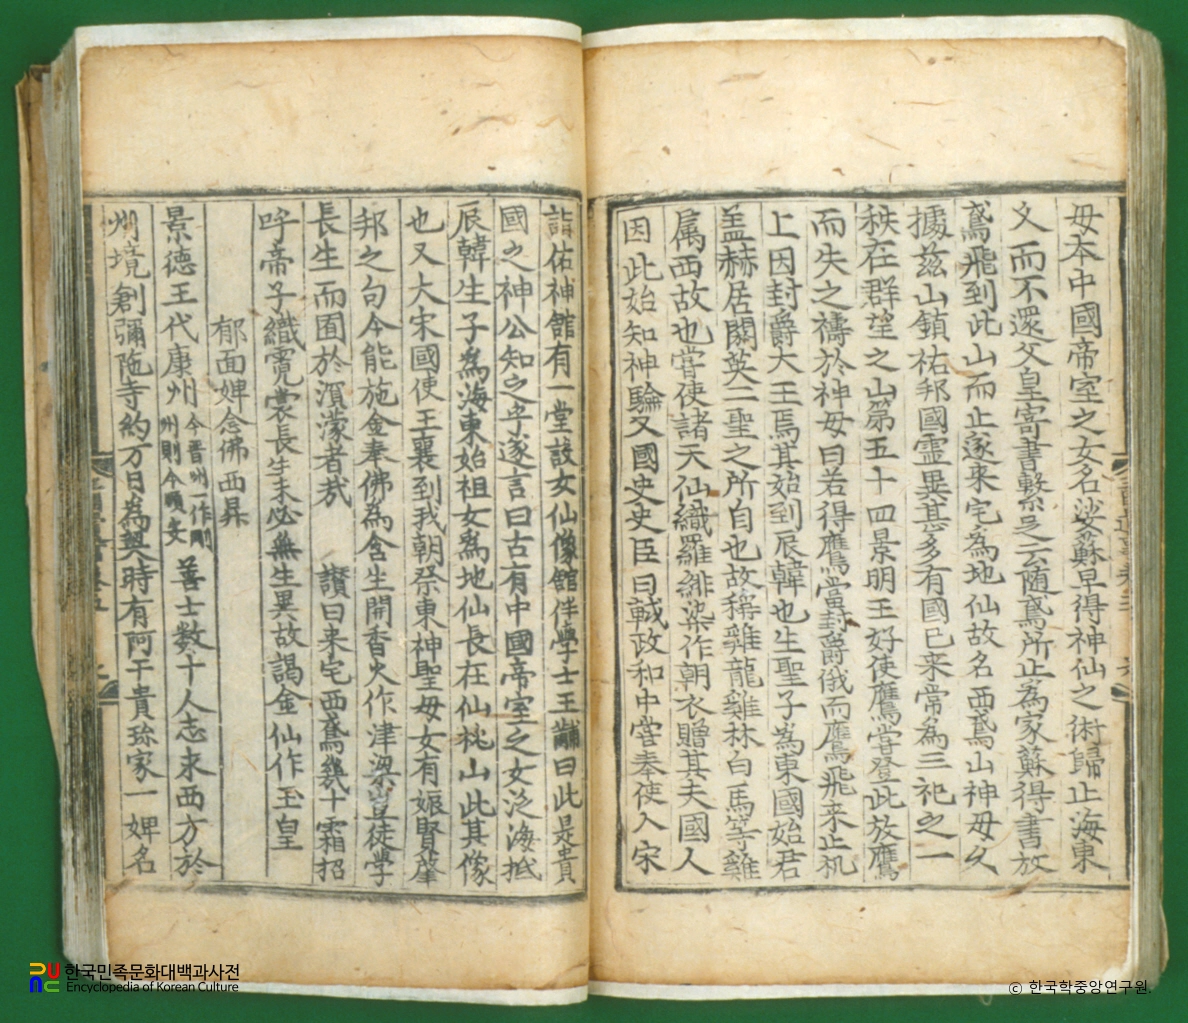 母本中國帝室之女名娑蘇早得神仙之術歸止海東
久而不還父皇寄書繫足云隨鳶所止為家蘇得書放
鳶飛到此山而止遂来宅為地仙故名西鳶山神母久
據兹山鎮祐邦國靈異甚多有國已来常為三祀之一
秩在群望之山第五十四景明王好使鷹甞登此放鷹
而失之禱於神母曰若得鷹當封爵俄而鷹飛来止机
上因封爵大王焉其始到辰韓也生聖子為東國始君
盖赫居閼英二聖之所自也故稱雞龍雞林白馬等雞
属西故也嘗使諸天仙織羅緋染作朝衣贈其夫國人
因此始知神驗又國史史臣曰軾政和中甞奉使入宋
詣佑神館有一堂設女仙像館伴學士王黼曰此是貴
國之神公知之乎遂言曰古有中國帝室之女泛海抵
辰韓生子爲海東始祖女爲地仙長在仙桃山此其像
也又大宋國使王襄到我朝祭東神聖母女有娠賢肇
邦之句今能施金奉佛為含生開香火作津梁豈徒學
長生而囿於溟濛者㢤 讃曰来宅西鳶幾十霜招
呼帝子織霓裳長生未必無生異故謁金仙作玉皇
郁面婢念佛西昇
景德王代康州今晋州一作剛州則今順安善士數十人志求西方於
州境創彌陁寺約万日為契時有阿干貴珎家一婢名
한국민족문화대백과사전
Encyclopedia of Korean Culture
© 한국학중앙연구원.